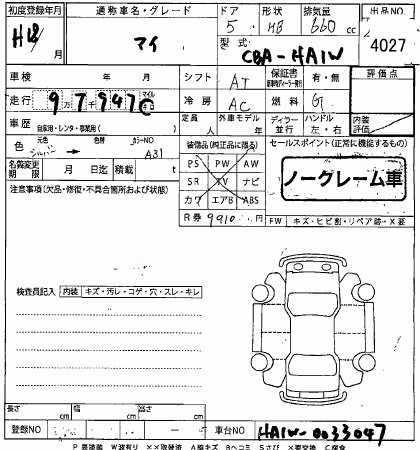 初度登録年月 通称車名・グレード ドア 形状 排気量 出品NO
H18/月 アイ 5 HB 660 cc 4027
型式 CBA-HA1W
車検 年 月 シフト AT 保証書 有・無 評価点
走行 97947 万 千 マイル Km 冷房 AC 燃料 G
車歴 自家用・レンタ・事業用( ) 定員 人 外車モデル 年 ディーラー 並行 ハンドル 左・右 内装評価
色 元色 シルバー → 色替 カラーNO A31 装備品(純正品に限る) セールスポイント(正常に機能するもの)
名義変更期限 月 日迄 積載 t PS PW AW
注意事項(欠品・修復・不具合箇所および状態) SR TV ナビ ノークレーム車
カワ エアB ABS
R券 9910 円 FW キズ・ヒビ割・リペア跡・X要
検査員記入 内装 キズ・汚レ・コゲ・穴・スレ・キレ
長さ cm 幅 cm 高さ cm
登録NO 車台NO HA1W-0033047
P 要塗装 W波有り XX取替済 A線キズ Bヘコミ Sさび X要交換 C腐食